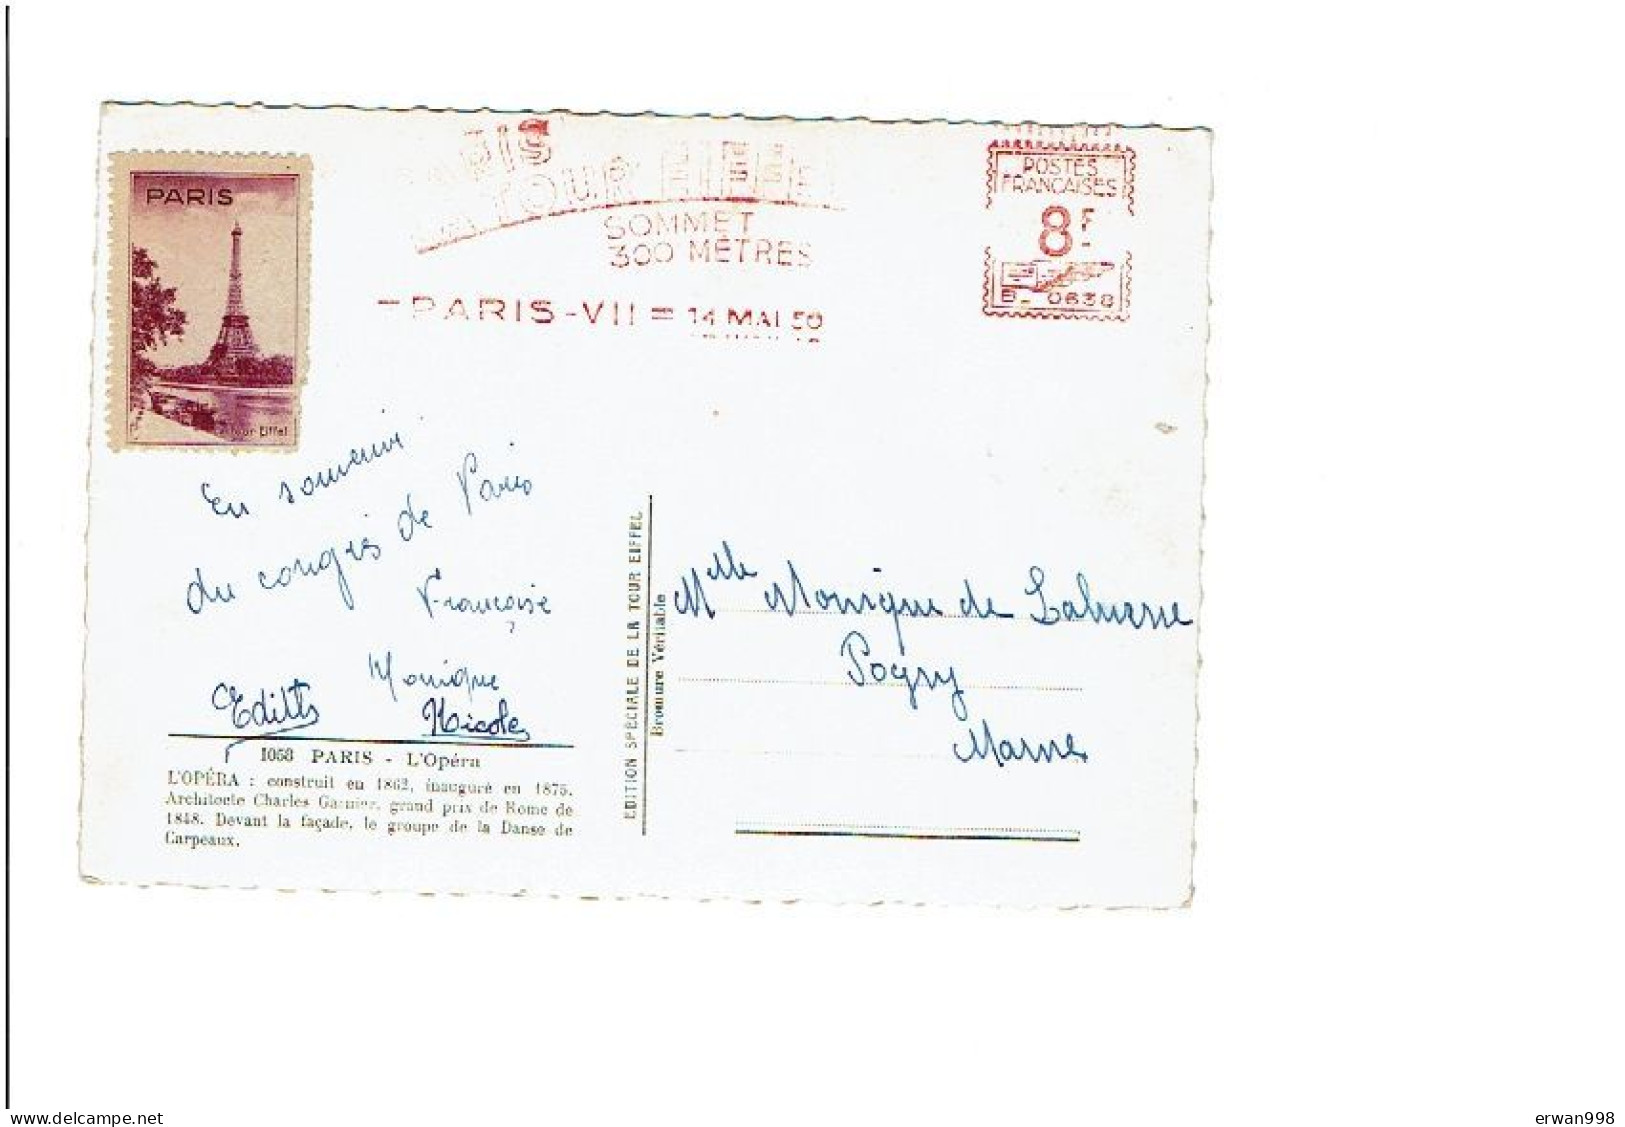 PARIS
PARIS
LA TOUR EIFFEL
SOMMET
300 MÈTRES
POSTES
FRANÇAISES
8F
B_ 0638
- PARIS - VII = 14 MAI 50
Tour Eiffel
En souvenir
du congrès de Paris
Françoise
Monique
Edith
Nicole
1053 PARIS - L'Opéra
L'OPÉRA : construit en 1862, inauguré en 1875.
Architecte Charles Garnier, grand prix de Rome de
1848. Devant la façade, le groupe de la Danse de
Carpeaux.
EDITION SPÉCIALE DE LA TOUR EIFFEL
Bromure Véritable
Mlle Monique de
Pogny
Marne
www.delcampe.net
erwan998